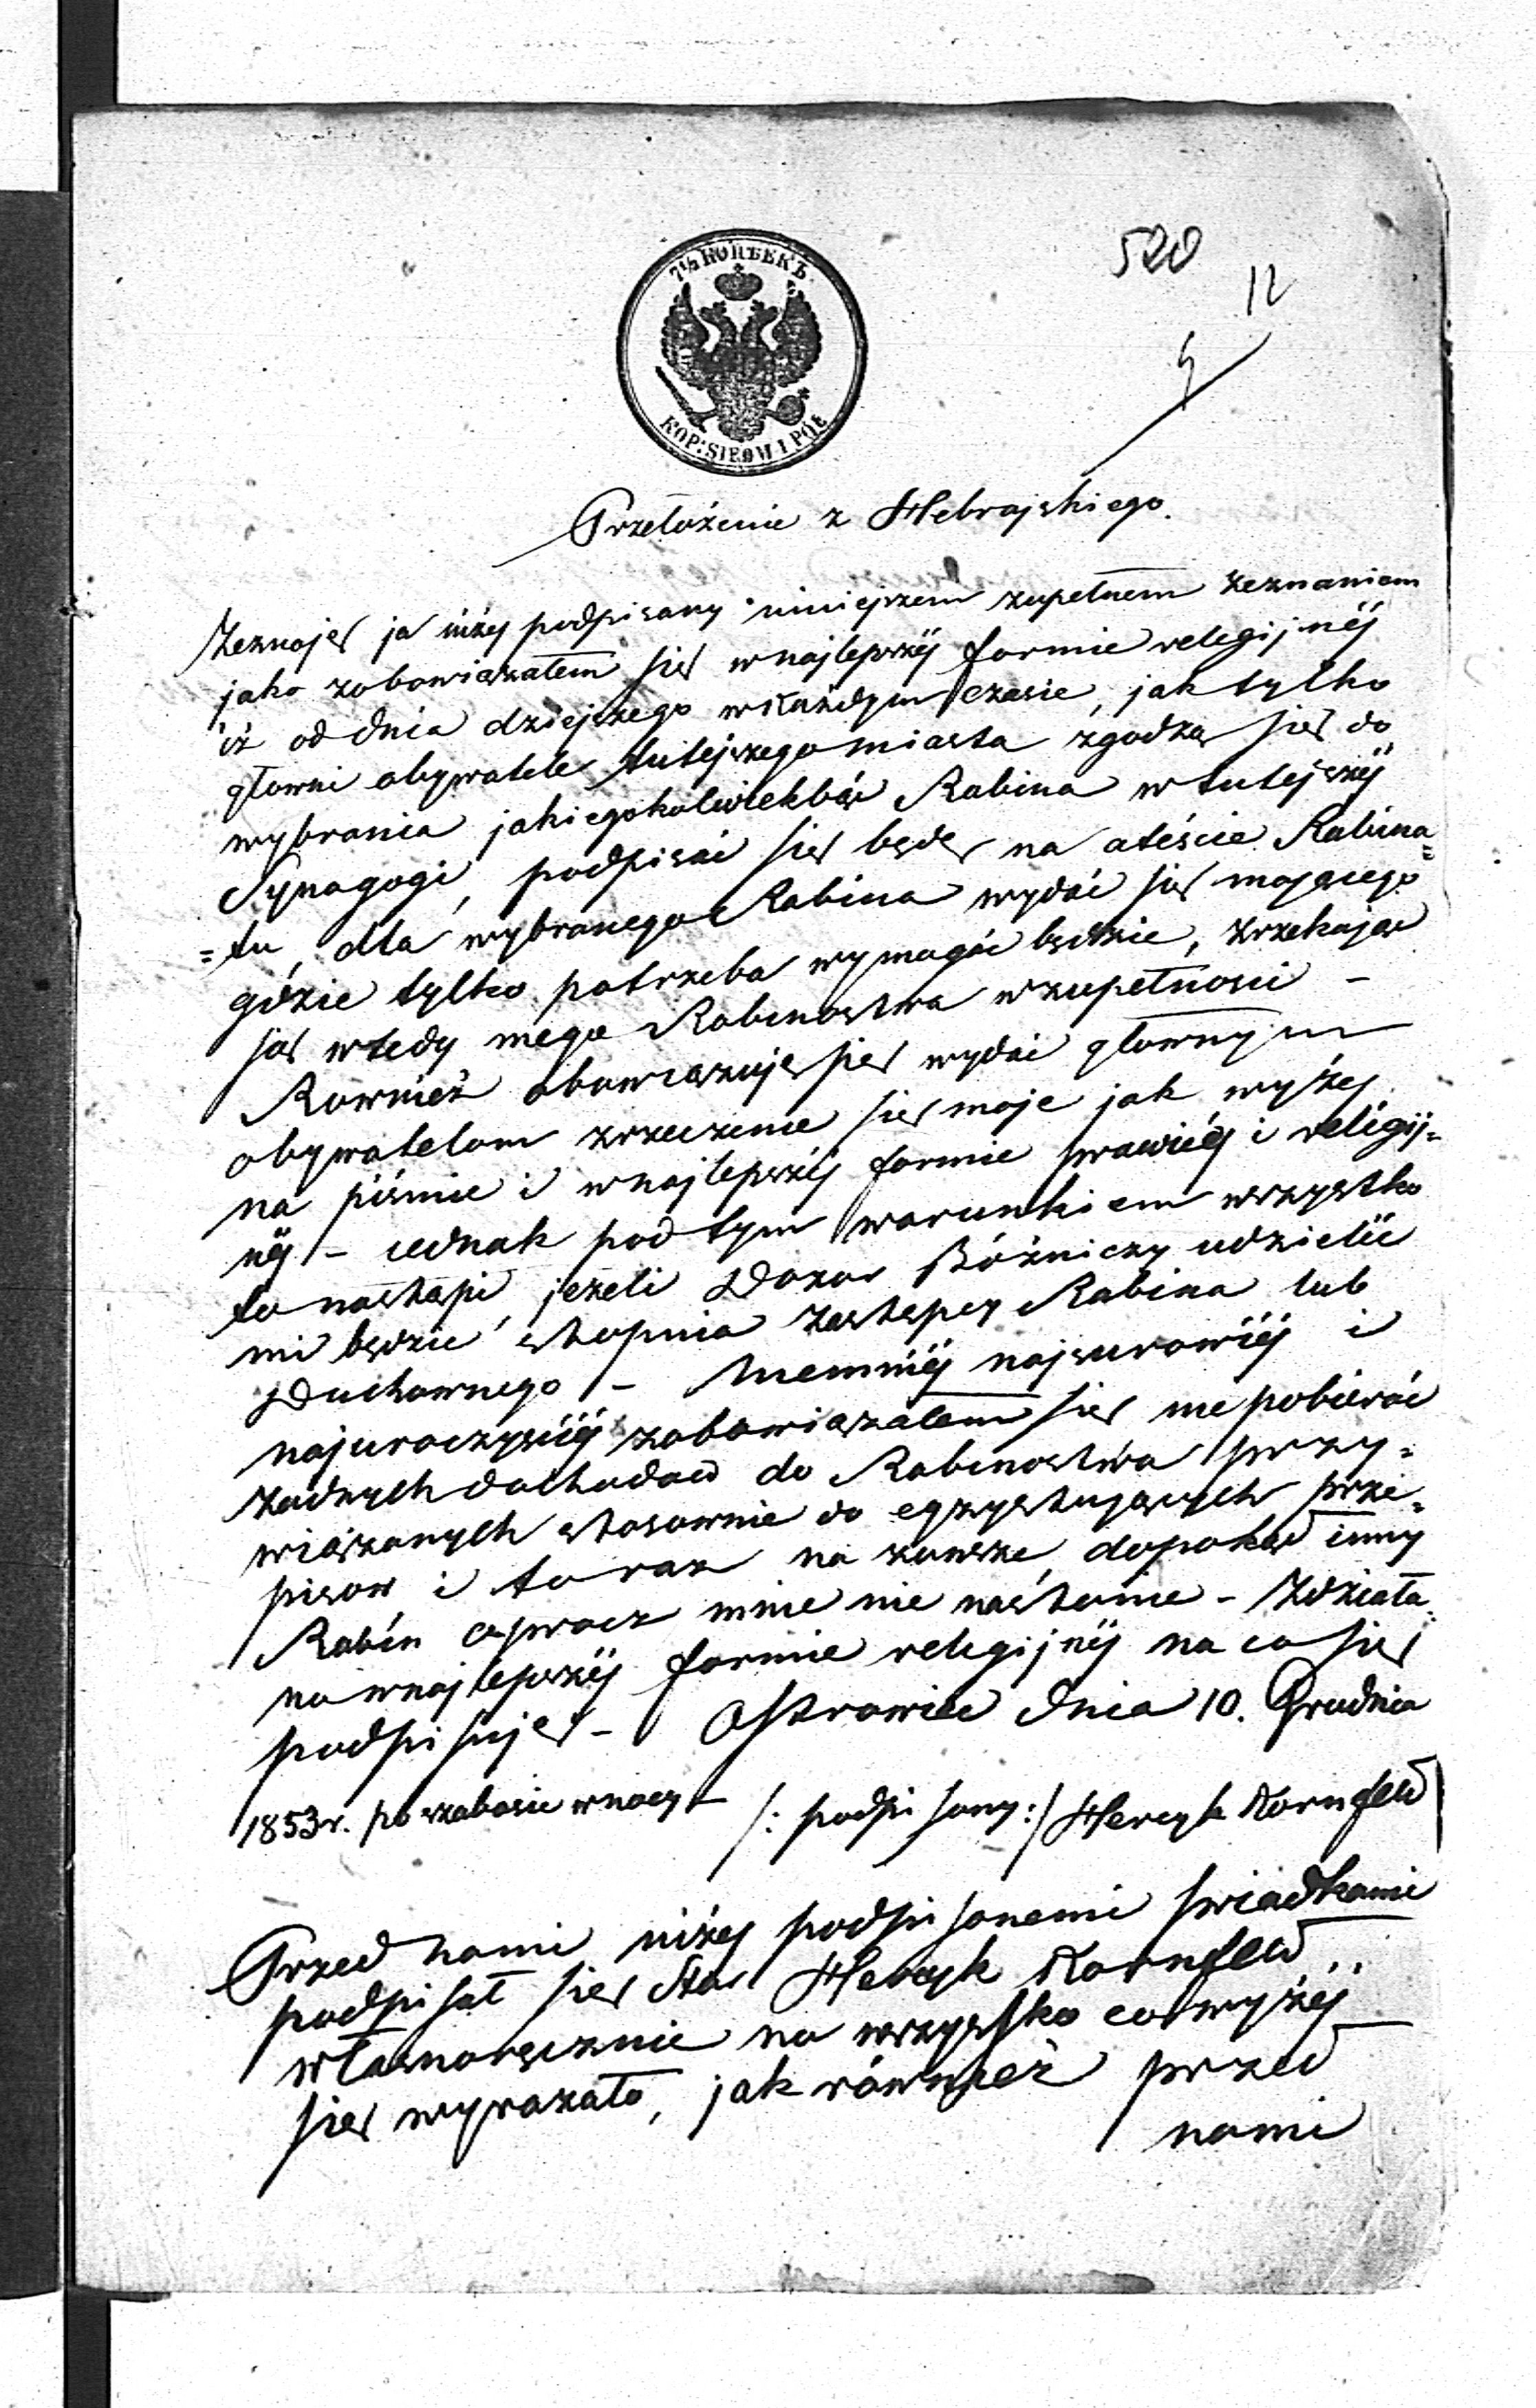 520
12
7½ КОПѢЕКЪ.
KOP: SIEDM I PÓŁ
Przełożenie z Hebrajskiego.
Zeznaję ja niżej podpisany niniejszem zupełnem zeznaniem
jako zobowiązałem się w najlepszéj formie religijnéj
iż od dnia dziejszego w każdym czasie, jak tylko
główni obywatele tutejszego miasta zgodzą się do
wybrania jakiegokolwiekbąć Rabina w tutejszéj
Synagogi, podpisać się będę na ateście Rabina=
=tu, dla wybranego Rabina wydać się mającego
gdzie tylko potrzeba wymagać będzie, zrzekając
się wtedy mégo Rabinostwa w zupełności –
Rownież obowiązuję się wydać głownym
obywatelom zrzeczenie się moje jak wyżey
na piśmie i w najlepszéj formie prawnéj i religij=
néj – jednak pod tym warunkiem wszystko
to nastąpi, jeżeli Dozor Bóżniczy udzielić
mi będzie stopnia zastępcy Rabina lub
Duchownego – Niemniéj najsurowiéj i
najuroczyściéj zobowiązałem się nie pobierać
żadnych dochodow do Rabinostwa przy=
wiązanych stosownie do egzystujących prze=
pisow i to raz na zawsze dopokąd inny
Rabin oprocz mnie nie nastanie – Zdziała=
no w najlepszéj formie religijnéj na co się
podpisuję – Ostrowiec dnia 10. Grudnia
1853 r. po szabasie w nocy – /: podpisany:/ Hercyk Kornfeld
Przed nami niżej podpisanemi świadkami
podpisał się Hercyk Kornfeld
własnoręcznie na wszystko co wyżéj
się wyrazało, jak również przed
nami